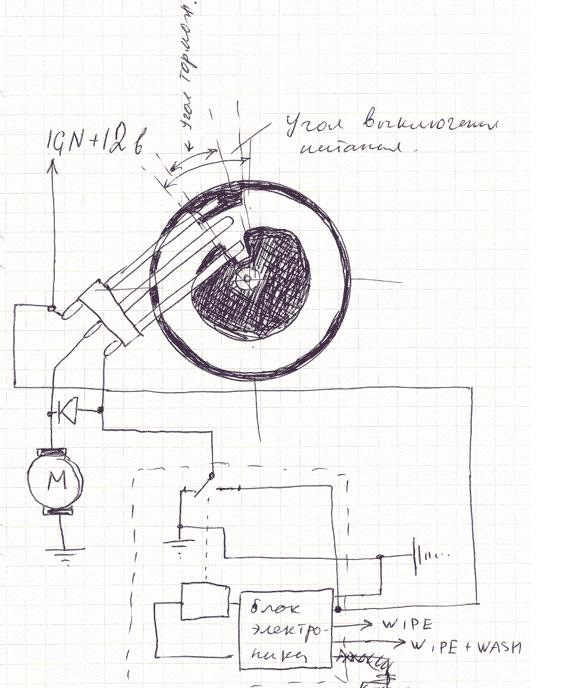 Угол тормож.
IGN+12 в
Угол выключения
питания.
M
блок
электро-
ники
WIPE
WIPE + WASH